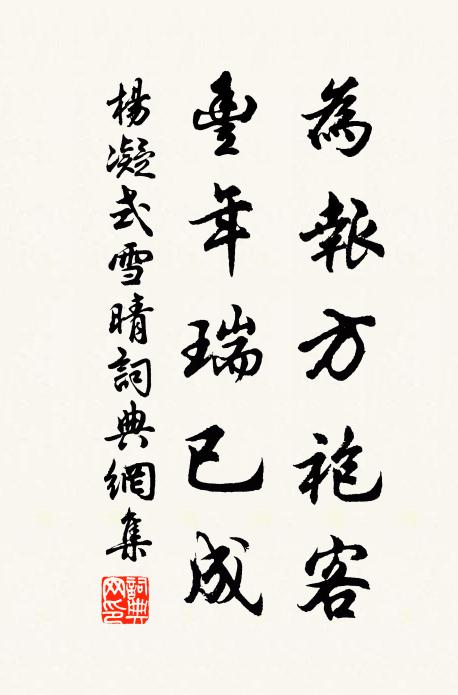 為報方袍客
豐年瑞已成
楊凝式雪晴詞典網集
詞典網印